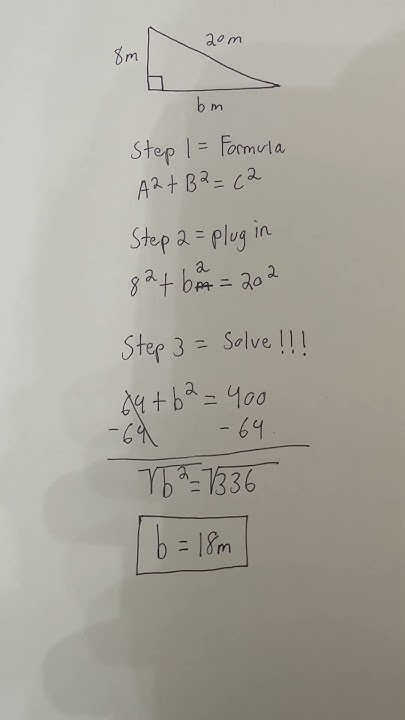 20m
8m
bm
Step 1 = Formula
A² + B² = C²
Step 2 = plug in
8² + b² = 20²
Step 3 = Solve!!!
64 + b² = 400
-64 -64
√b² = √336
b = 18m